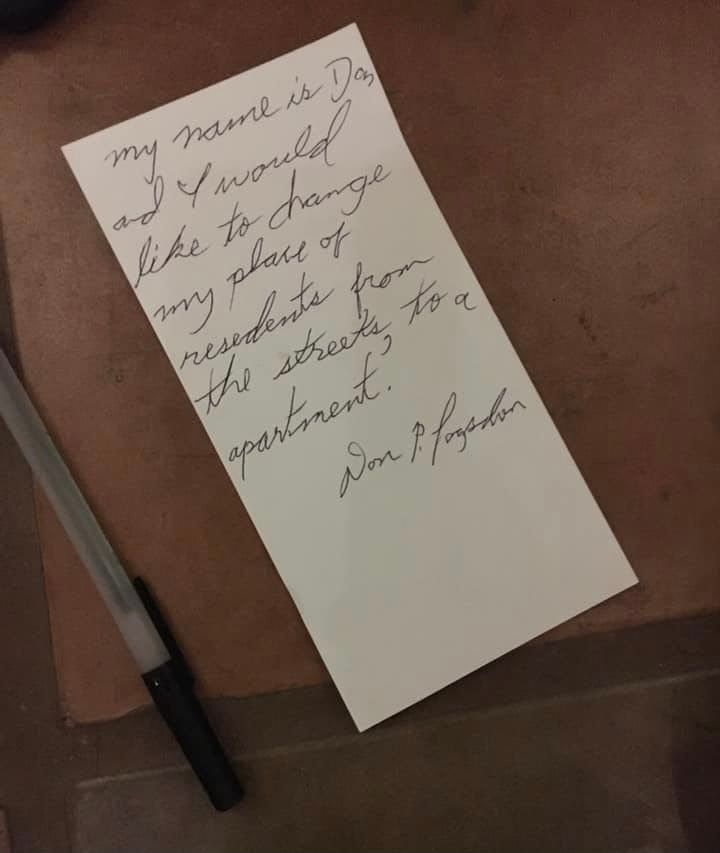 my name is Don
and I would
like to change
my place of
resedents from
the streets to a
apartment.
Don P. Logsdon